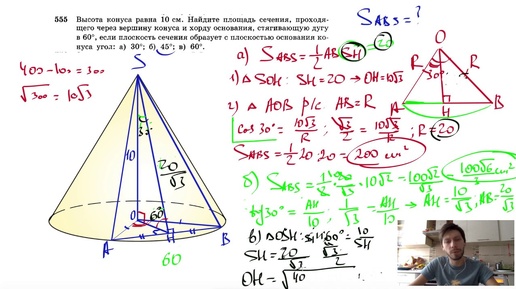 555 Высота конуса равна 10 см. Найдите площадь сечения, проходя-
щего через вершину конуса и хорду основания, стягивающую дугу
в 60°, если плоскость сечения образует с плоскостью основания ко-
нуса угол: а) 30°; б) 45°; в) 60°.
400-100=300
√300 = 10√3
S
10
30
20/√3
O
60°
A
H
B
60
S ABS = ?
а) S ABS = 1/2 AB SH = 20
1) △ SOH: SH = 20 → OH = 10√3
2) △ AOB р/с: AB = R
cos 30° = 10√3/R ; √3/2 = 10√3/R ; R = 20
S ABS = 1/2 20·20 = 200 см²
O
R
30°
R
A
H
B
б) S ABS =
· 10√2 = 100√2/√3 = 100√6
tg 30° = AH/10 ; 1/√3 = AH/10 → AH = 10/√3 ; AB = 20/√3
в) △ OSH: sin 60° = 10/SH
SH = 20/√3
√3/2
OH = √40